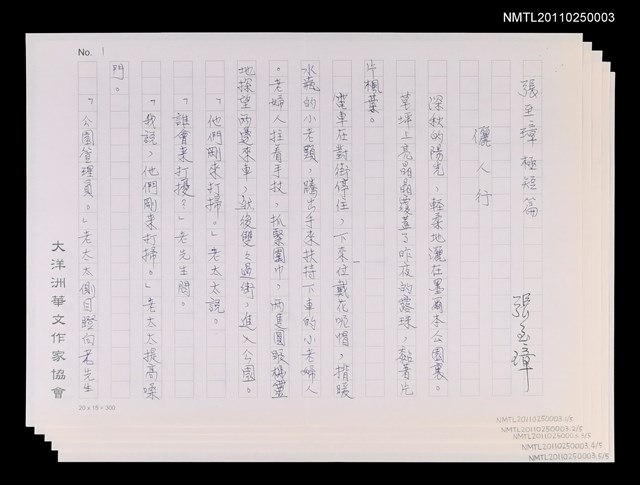 NMTL20110250003
No. 1
張至璋極短篇
儷人行
張至璋
深秋的陽光，輕柔地灑在墨爾本公園裏。
草坪上亮晶晶覆蓋了昨夜的露珠，黏著片
片楓葉。
電車在對街停住，下來位戴花呢帽，揹暖
水瓶的小老頭，騰出手來扶持下車的小老婦人
。老婦人拄着手杖，抓緊圍巾，兩隻圓眼機靈
地探望兩邊來車，然後雙雙過街，進入公園。
「他們剛來打掃。」老太太說。
「誰會來打擾？」老先生問。
「我說，他們剛來打掃。」老太太提高嗓
門。
「公園管理員。」老太太側目瞪向老先生
大洋洲華文作家協會
20 x 15 = 300
NMTL20110250003.1/5
NMTL20110250003.2/5
NMTL20110250003.3/5
NMTL20110250003.4/5
NMTL20110250003.5/5